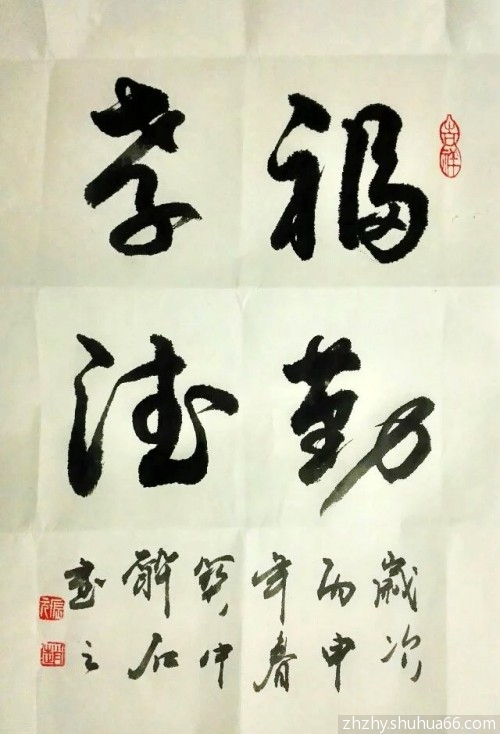 吉祥
福勤
孝德
歲次
丙申
年春
中
解石
書之
zhzhy.shuhua66.com